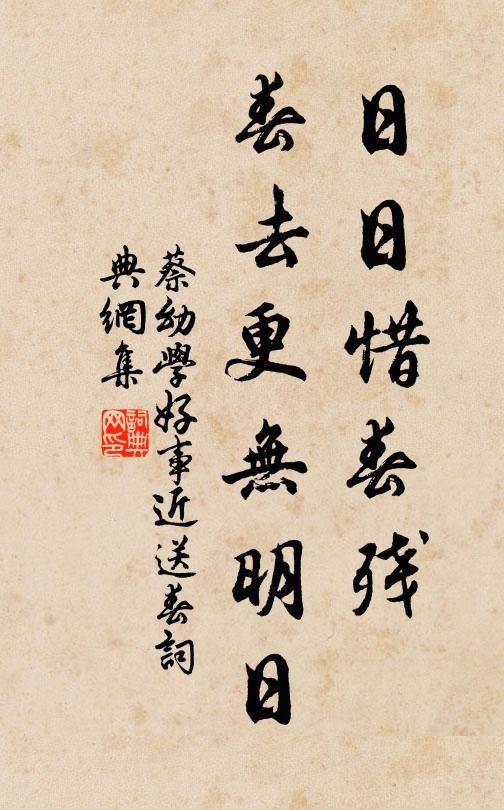 日日惜春残
春去更無明日
蔡幼學好事近送春詞
典網集
詞典网印